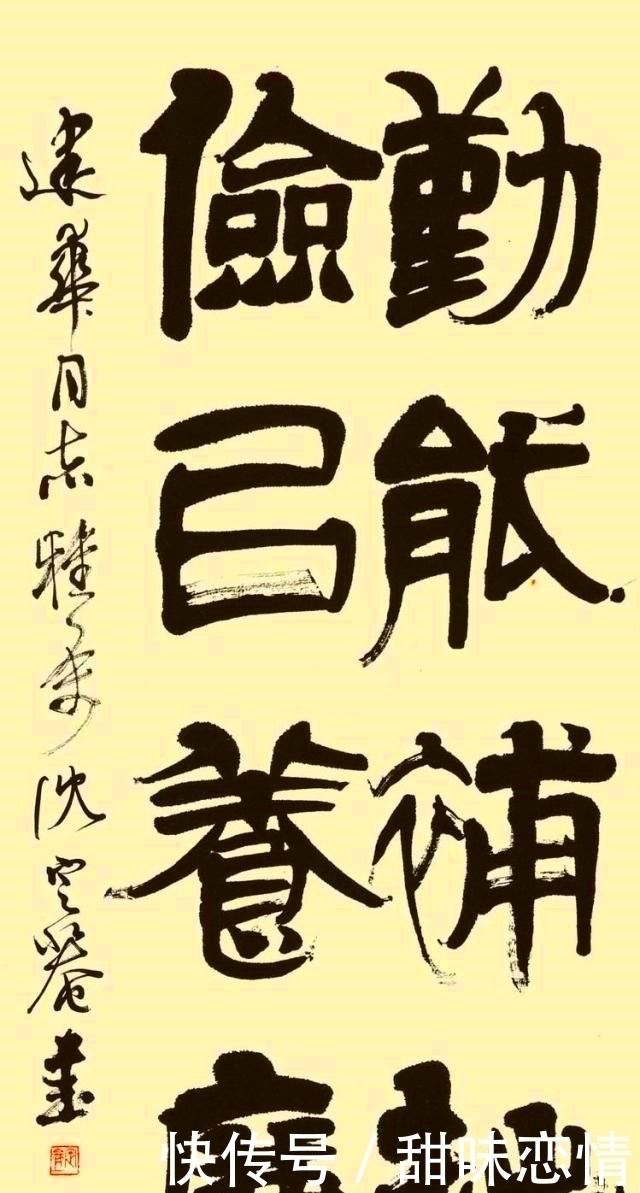 勤能補拙
儉㠯養廉
建華同志雅屬 沈定菴書
快传号 / 甜味恋情